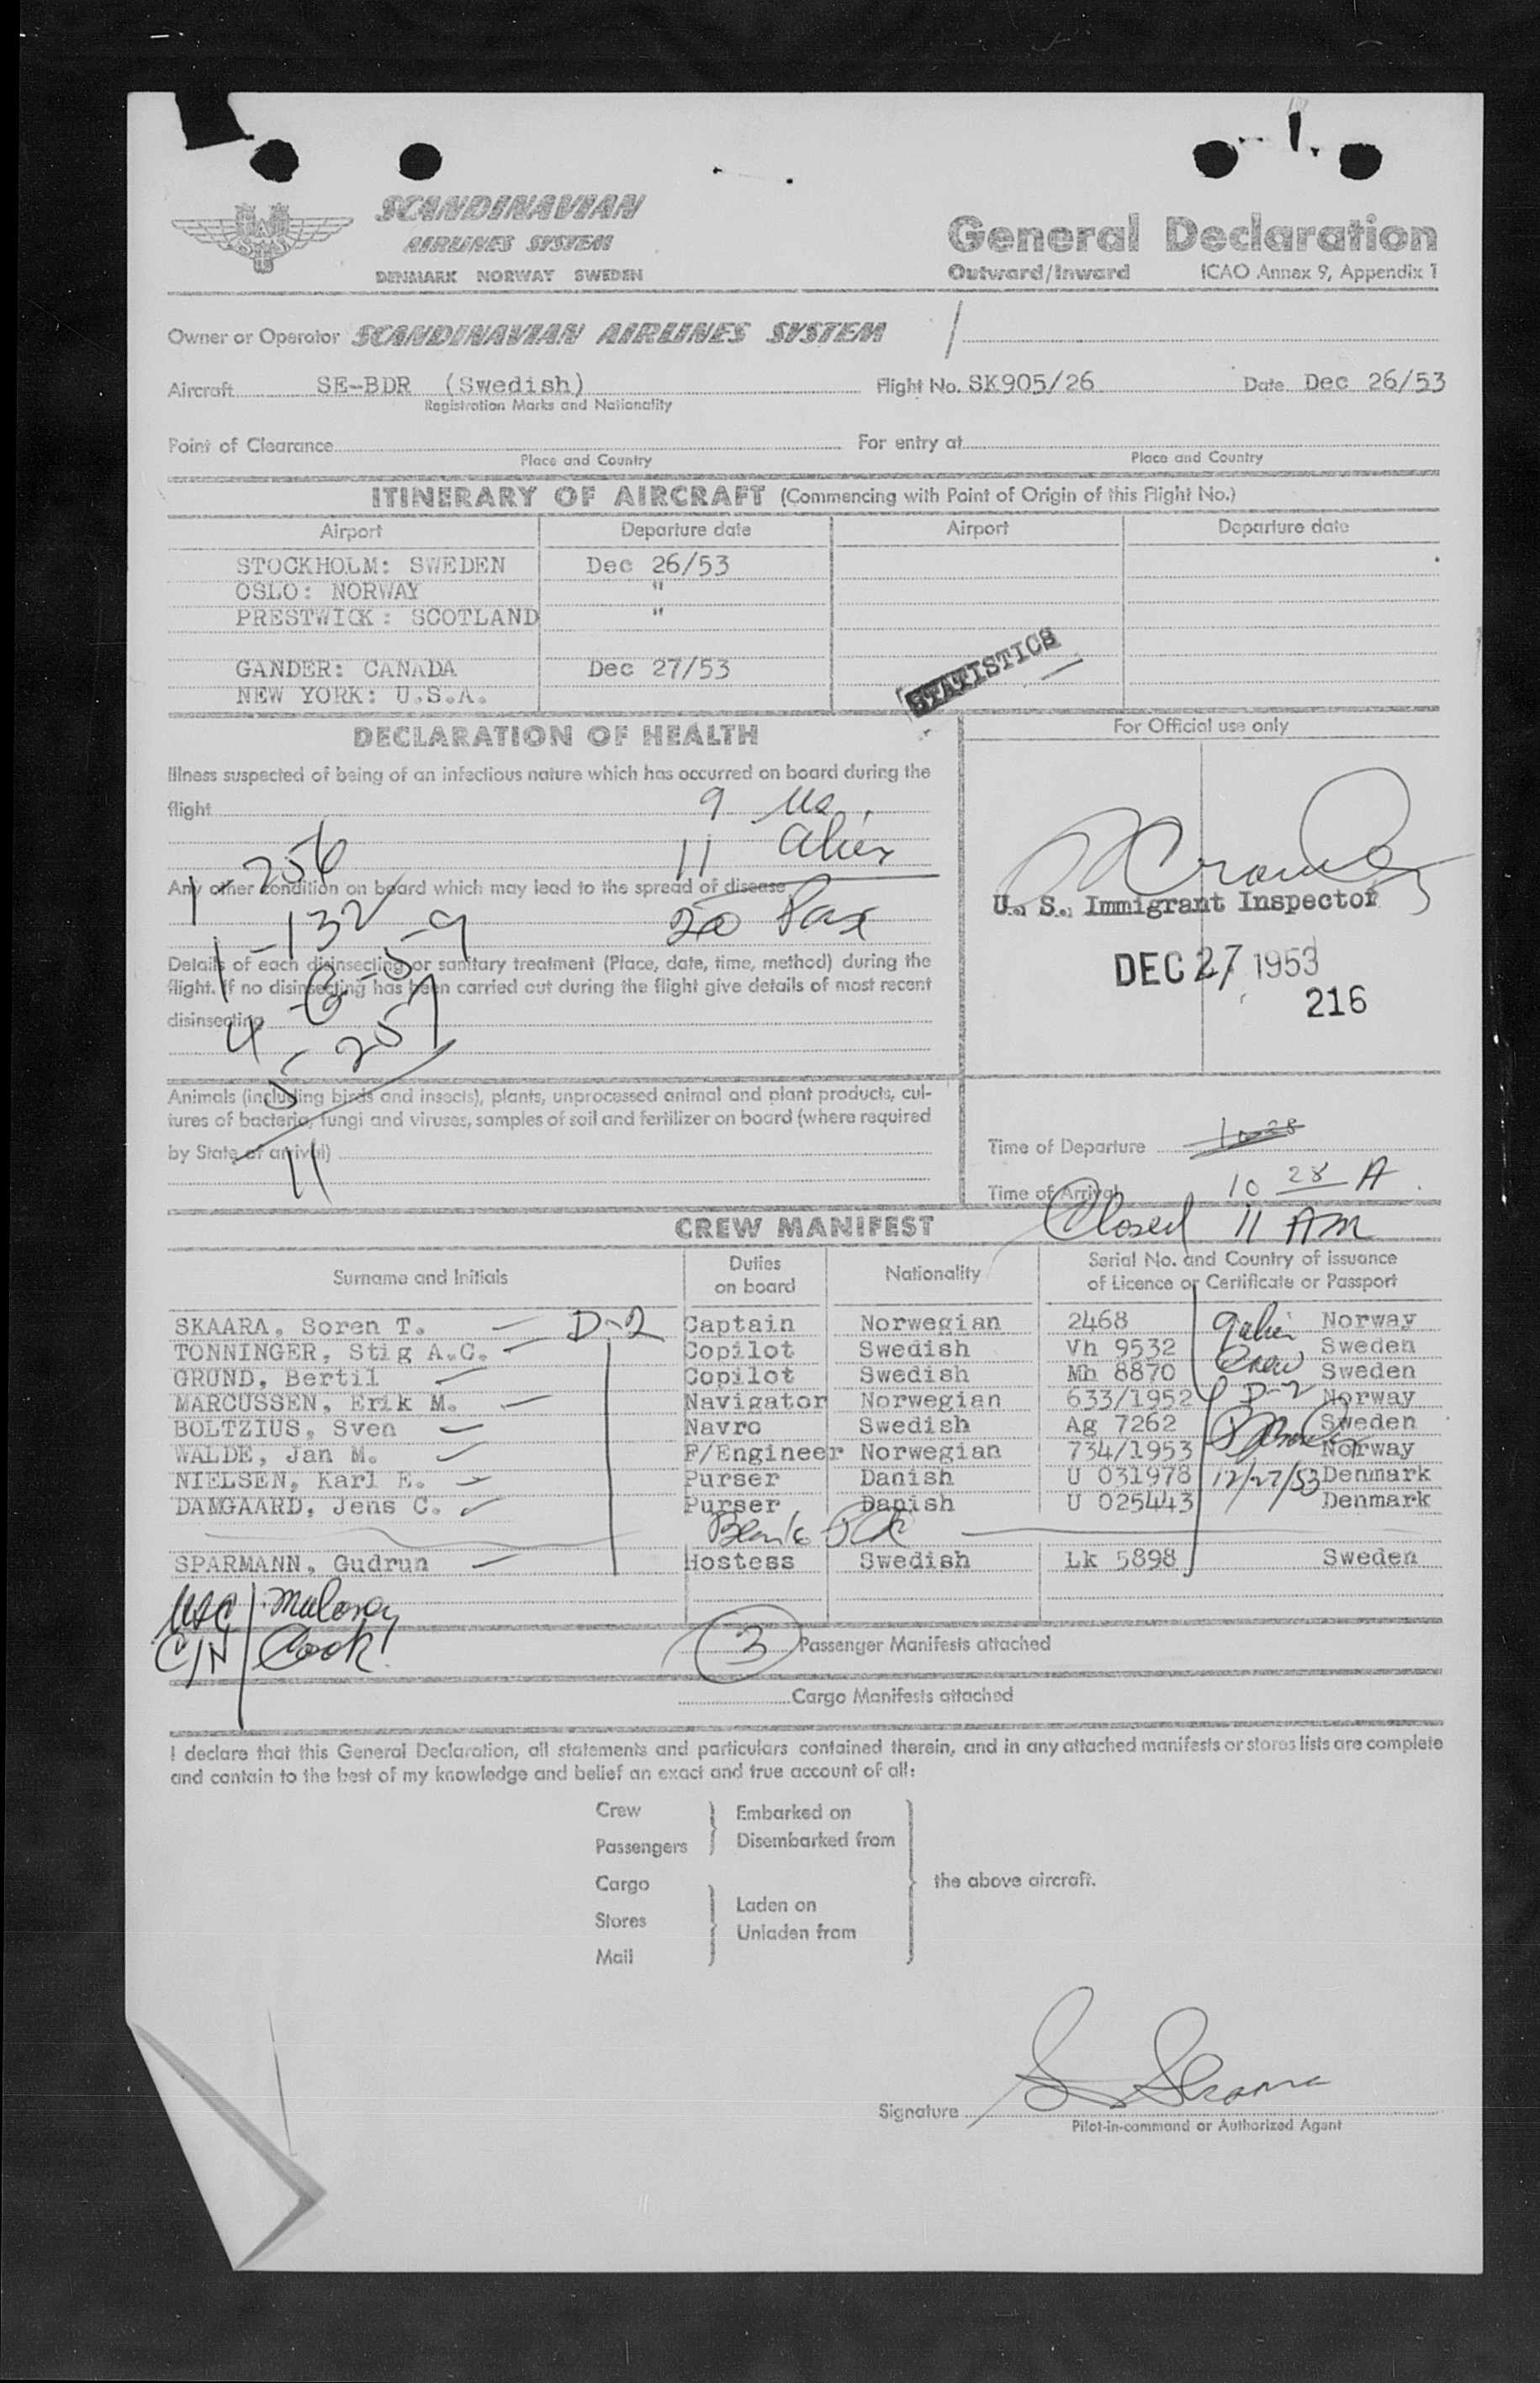 SCANDINAVIAN
AIRLINES SYSTEM
DENMARK NORWAY SWEDEN
General Declaration
Outward/Inward ICAO Annex 9, Appendix 1
Owner or Operator SCANDINAVIAN AIRLINES SYSTEM
Aircraft SE-BDR (Swedish) Flight No. SK905/26 Date Dec 26/53
Registration Marks and Nationality
Point of Clearance For entry at
Place and Country Place and Country
ITINERARY OF AIRCRAFT (Commencing with Point of Origin of this Flight No.)
Airport Departure date Airport Departure date
STOCKHOLM: SWEDEN Dec 26/53
OSLO: NORWAY "
PRESTWICK: SCOTLAND "
GANDER: CANADA Dec 27/53
NEW YORK: U.S.A.
STATISTICS
DECLARATION OF HEALTH
For Official use only
Illness suspected of being of an infectious nature which has occurred on board during the
flight
9 US
11 alien
20 Pax
Any other condition on board which may lead to the spread of disease
1 - 256
1 - 132
Details of each disinsecting or sanitary treatment (Place, date, time, method) during the
flight. If no disinsecting has been carried out during the flight give details of most recent
disinsecting
11
U. S. Immigrant Inspector
DEC 27 1953
216
Animals (including birds and insects), plants, unprocessed animal and plant products, cul-
tures of bacteria, fungi and viruses, samples of soil and fertilizer on board (where required
by State of arrival)
Time of Departure 10 28
Time of Arrival 10 28 A
Closed 11 AM
CREW MANIFEST
Surname and Initials Duties on board Nationality Serial No. and Country of issuance of Licence or Certificate or Passport
SKAARA, Soren T. D-2 Captain Norwegian 2468 9 alien Norway
TONNINGER, Stig A.C. Copilot Swedish Vh 9532 Crew Sweden
GRUND, Bertil Copilot Swedish Mh 8870 Sweden
MARCUSSEN, Erik M. Navigator Norwegian 633/1952 D-2 Norway
BOLTZIUS, Sven Navro Swedish Ag 7262 Sweden
WALDE, Jan M. F/Engineer Norwegian 734/1953 Norway
NIELSEN, Karl E. Purser Danish U 031978 12/27/53 Denmark
DAMGAARD, Jens C. Purser Danish U 025443 Denmark
SPARMANN, Gudrun Hostess Swedish Lk 5898 Sweden
USC Muloney
C/N Cook
3 Passenger Manifests attached
Cargo Manifests attached
I declare that this General Declaration, all statements and particulars contained therein, and in any attached manifests or stores lists are complete
and contain to the best of my knowledge and belief an exact and true account of all:
Crew
Passengers
Embarked on
Disembarked from
Cargo
Stores
Mail
Laden on
Unladen from
the above aircraft.
Signature S Skaara
Pilot-in-command or Authorized Agent